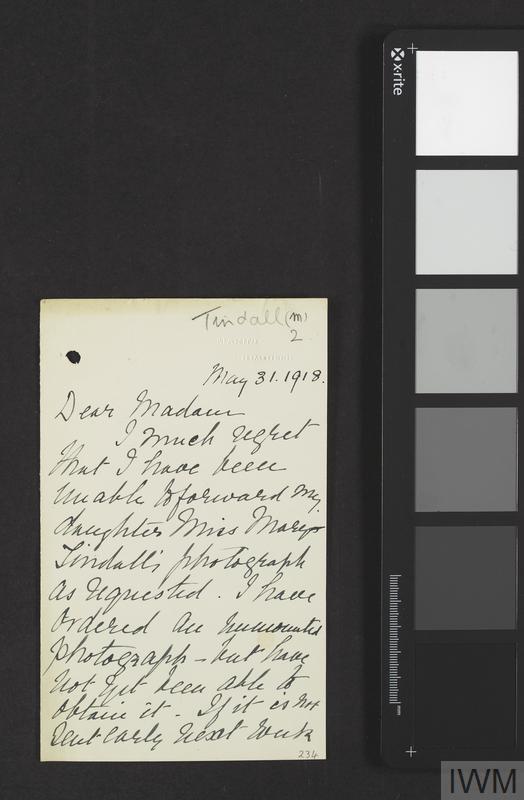 Tindall (M)
2
May 31. 1918.
Dear Madam
I much regret
that I have been
unable to forward my
daughter Miss Mary
Tindall's photograph
as requested. I have
ordered an unmounted
photograph – but have
not yet been able to
obtain it – If it is not
sent early next week
234
x-rite
mm
IWM